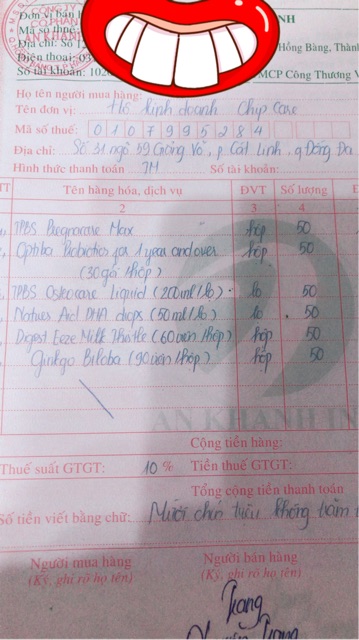 CÔNG TY
CỔ PHẦN
AN KHÁNH
Đơn vị bán
Mã số thuế:
Địa chỉ: Số 1 Hồng Bàng, Thành
Điện thoại: 03
Số tài khoản: 1020 MCP Công Thương V
Họ tên người mua hàng:
Tên đơn vị: Hộ kinh doanh Chip Care
Mã số thuế: 0 1 0 7 9 9 5 2 8 4
Địa chỉ: Số 31 ngõ 59 Giảng Võ, p Cát Linh, q Đống Đa
Hình thức thanh toán TM Số tài khoản:
TT Tên hàng hóa, dịch vụ ĐVT Số lượng
2 3 4
TPBS Pregnacare Max hộp 50
Optiba Probiotics for 1 year and over hộp 50
(30 gói/hộp)
TPBS Osteocare Liquid (200ml/lọ) lọ 50
Natures Aid DHA drops (50ml/lọ) lọ 50
Digest Eeze Milk Thistle (60 viên/hộp) hộp 50
Ginkgo Biloba (90 viên/hộp) hộp 50
AN KHANH IN
Cộng tiền hàng:
Thuế suất GTGT: 10 % Tiền thuế GTGT:
Tổng cộng tiền thanh toán
Số tiền viết bằng chữ: Mười chín triệu không trăm
Người mua hàng Người bán hàng
(Ký, ghi rõ họ tên) (Ký, ghi rõ họ tên)
Trang